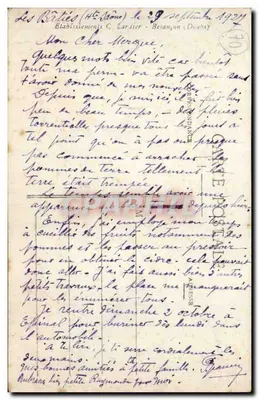 Les Bâties (Hte Saône) le 29 septembre 1927
Etablissements C. Lardier - Besançon (Doubs)
Mon Cher
Quelques mots bien vite car bientôt
toute ma perm va être passée sans
t'avoir donné de mes nouvelles
Depuis que je suis ici il fait
pas du beau temps, des pluies
torrentielles presque tous les jours à
tel point que l'on a pas ou presque
pas commencé à arracher les
pommes de terre tellement la
terre était trempée
semble avoir une
depuis hier
Enfin j'ai employé mon temps
à cueillir des fruits notamment des
pommes et les passer au pressoir
pour en obtenir le cidre, cela pouvait
donc aller. J'ai fait aussi bien d'autres
petits travaux, la place me manquerait
pour les énumérer tous.
Je rentre dimanche 2 octobre à
Epinal pour dès lundi dans
l'automobile.
A te lire, je te serre cordialement les
Mes bonnes amitiés à petite famille.
petite Raymonde pour moi.